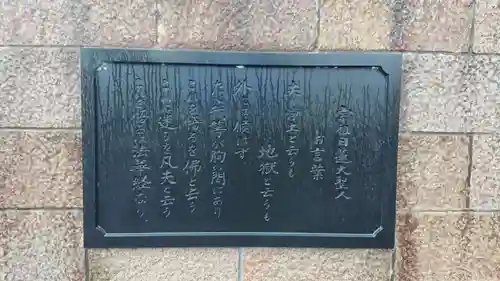 宗祖日蓮大聖人
お言葉
夫れ浄土と云うも
地獄と云うも
外には候はず
ただ我等が胸の間にあり
これを悟るを佛と云う
これに迷うを凡夫と云う
これを悟るは法華経なり